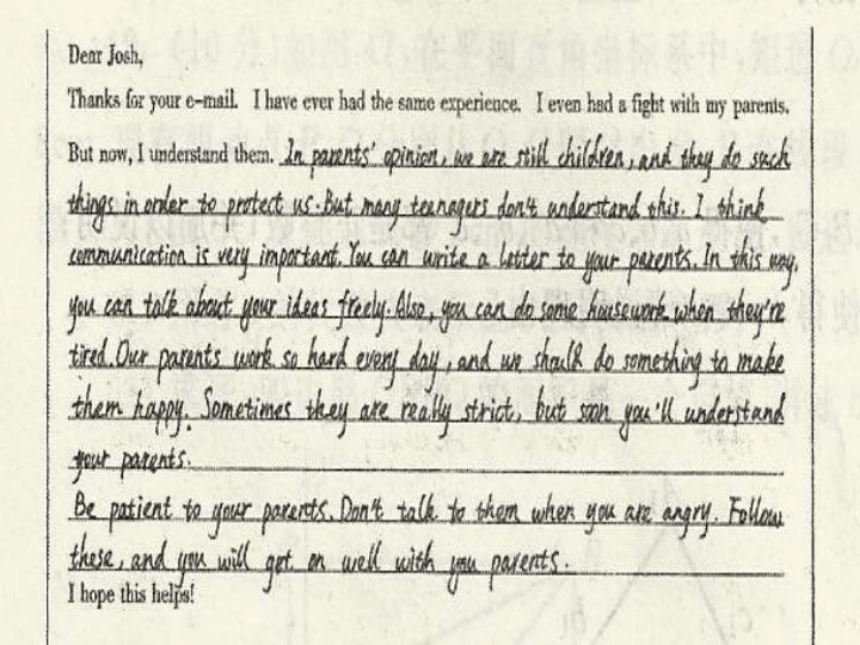 Dear Josh,
Thanks for your e-mail. I have ever had the same experience. I even had a fight with my parents.
But now, I understand them. In parents' opinion, we are still children, and they do such
things in order to protect us. But many teenagers don't understand this. I think
communication is very important. You can write a letter to your parents. In this way,
you can talk about your ideas freely. Also, you can do some housework when they're
tired. Our parents work so hard every day, and we should do something to make
them happy. Sometimes they are really strict, but soon you'll understand
your parents.
Be patient to your parents. Don't talk to them when you are angry. Follow
these, and you will get on well with you parents.
I hope this helps!